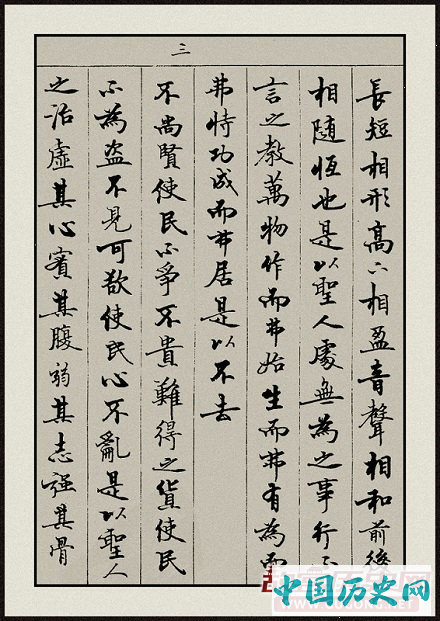 三
長短相形高下相盈音聲相和前後
相隨恆也是以聖人處無為之事行不
言之教萬物作而弗始生而弗有為而
弗恃功成而弗居是以不去
不尚賢使民不爭不貴難得之貨使民
不為盜不見可欲使民心不亂是以聖人
之治虛其心實其腹弱其志強其骨
中国历史网